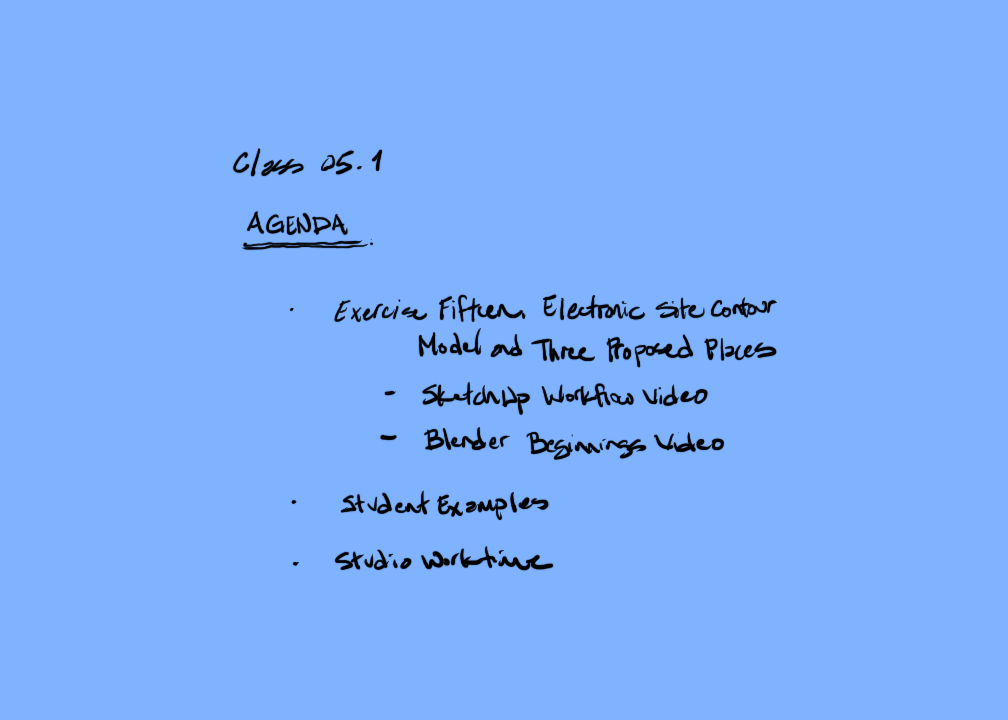 Class 05.1
AGENDA
· Exercise Fifteen, Electronic Site Contour
Model and Three Proposed Places
- SketchUp Workflow Video
- Blender Beginnings Video
· Student Examples
· Studio Worktime